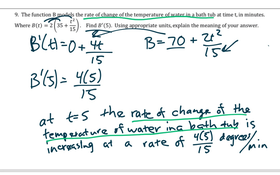 9. The function B models the rate of change of the temperature of water in a bath tub at time t, in minutes.
Where B(t) = 2(35 + t²/15) Find B'(5). Using appropriate units, explain the meaning of your answer.
B'(t) = 0 + 4t/15 B = 70 + 2t²/15
B'(5) = 4(5)/15
at t=5 the rate of change of the
temperature of water in a bath tub is
increasing at a rate of 4(5)/15 degrees/min